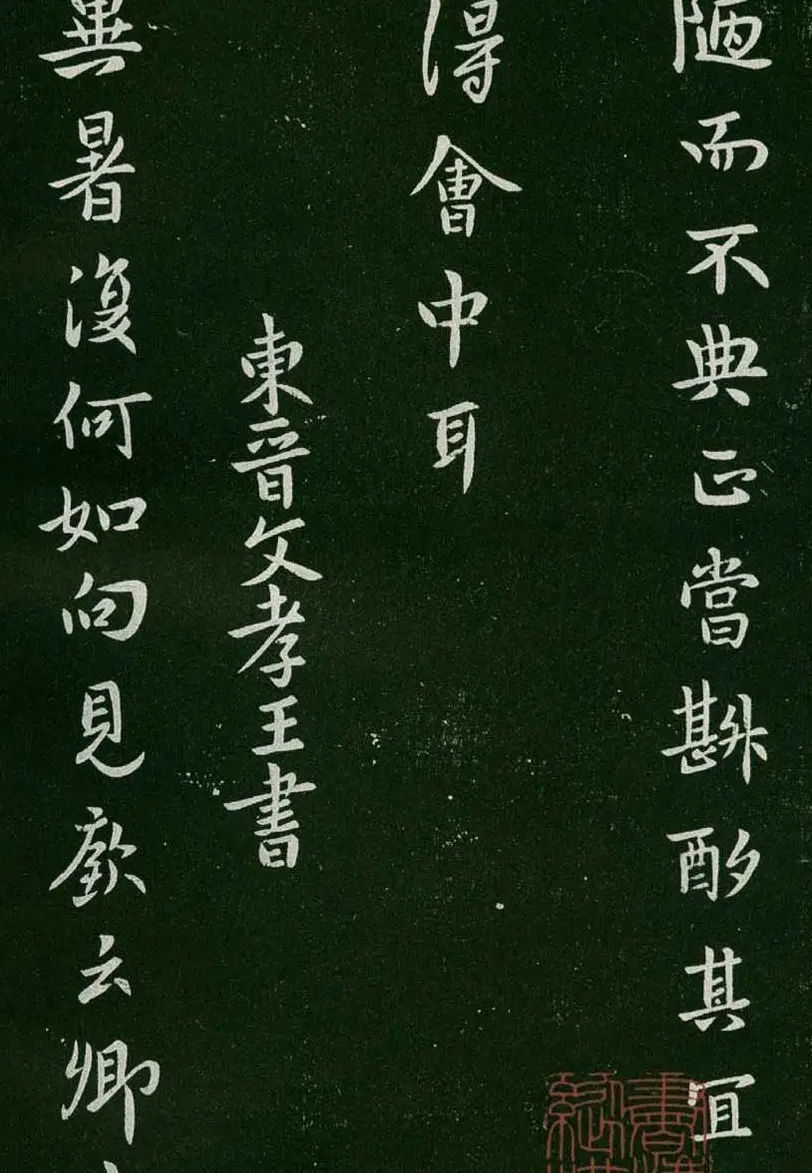 陋而不典正當斟酌其宜
得會中耳
東晉文孝王書
異暑復何如向見歡云卿